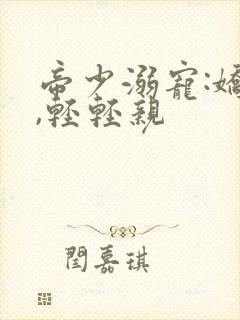 帝少溺寵:嬌
,輕輕親
閆嘉琪